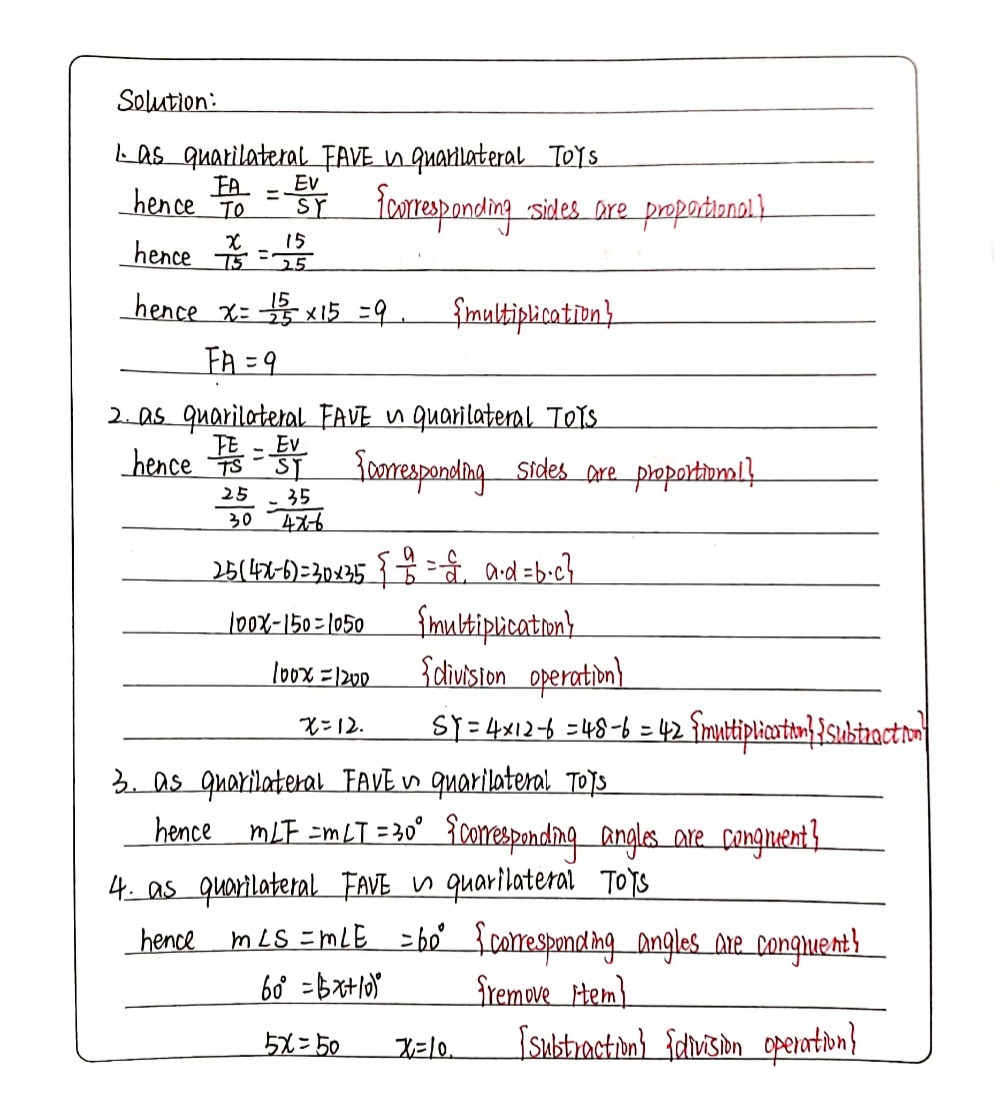 Solution:
1. as quarilateral FAVE ∽ quarilateral TOYS
hence FA/TO = EV/SY {corresponding sides are proportional}
hence x/15 = 15/25
hence x= 15/25 ×15 =9. {multiplication}
FA =9
2. as quarilateral FAVE ∽ quarilateral TOYS
hence FE/TS = EV/SY {corresponding sides are proportional}
25/30 = 35/4x-6
25(4x-6)=30×35 { a/b = c/d, a·d=b·c}
100x-150=1050 {multiplication}
100x=1200 {division operation}
x=12. SY=4×12-6=48-6=42 {multiplication}{subtraction}
3. as quarilateral FAVE ∽ quarilateral TOYS
hence m∠F=m∠T=30° {corresponding angles are congruent}
4. as quarilateral FAVE ∽ quarilateral TOYS
hence m∠S=m∠E =60° {corresponding angles are congruent}
60°=(5x+10)° {remove item}
5x=50 x=10. {subtraction} {division operation}